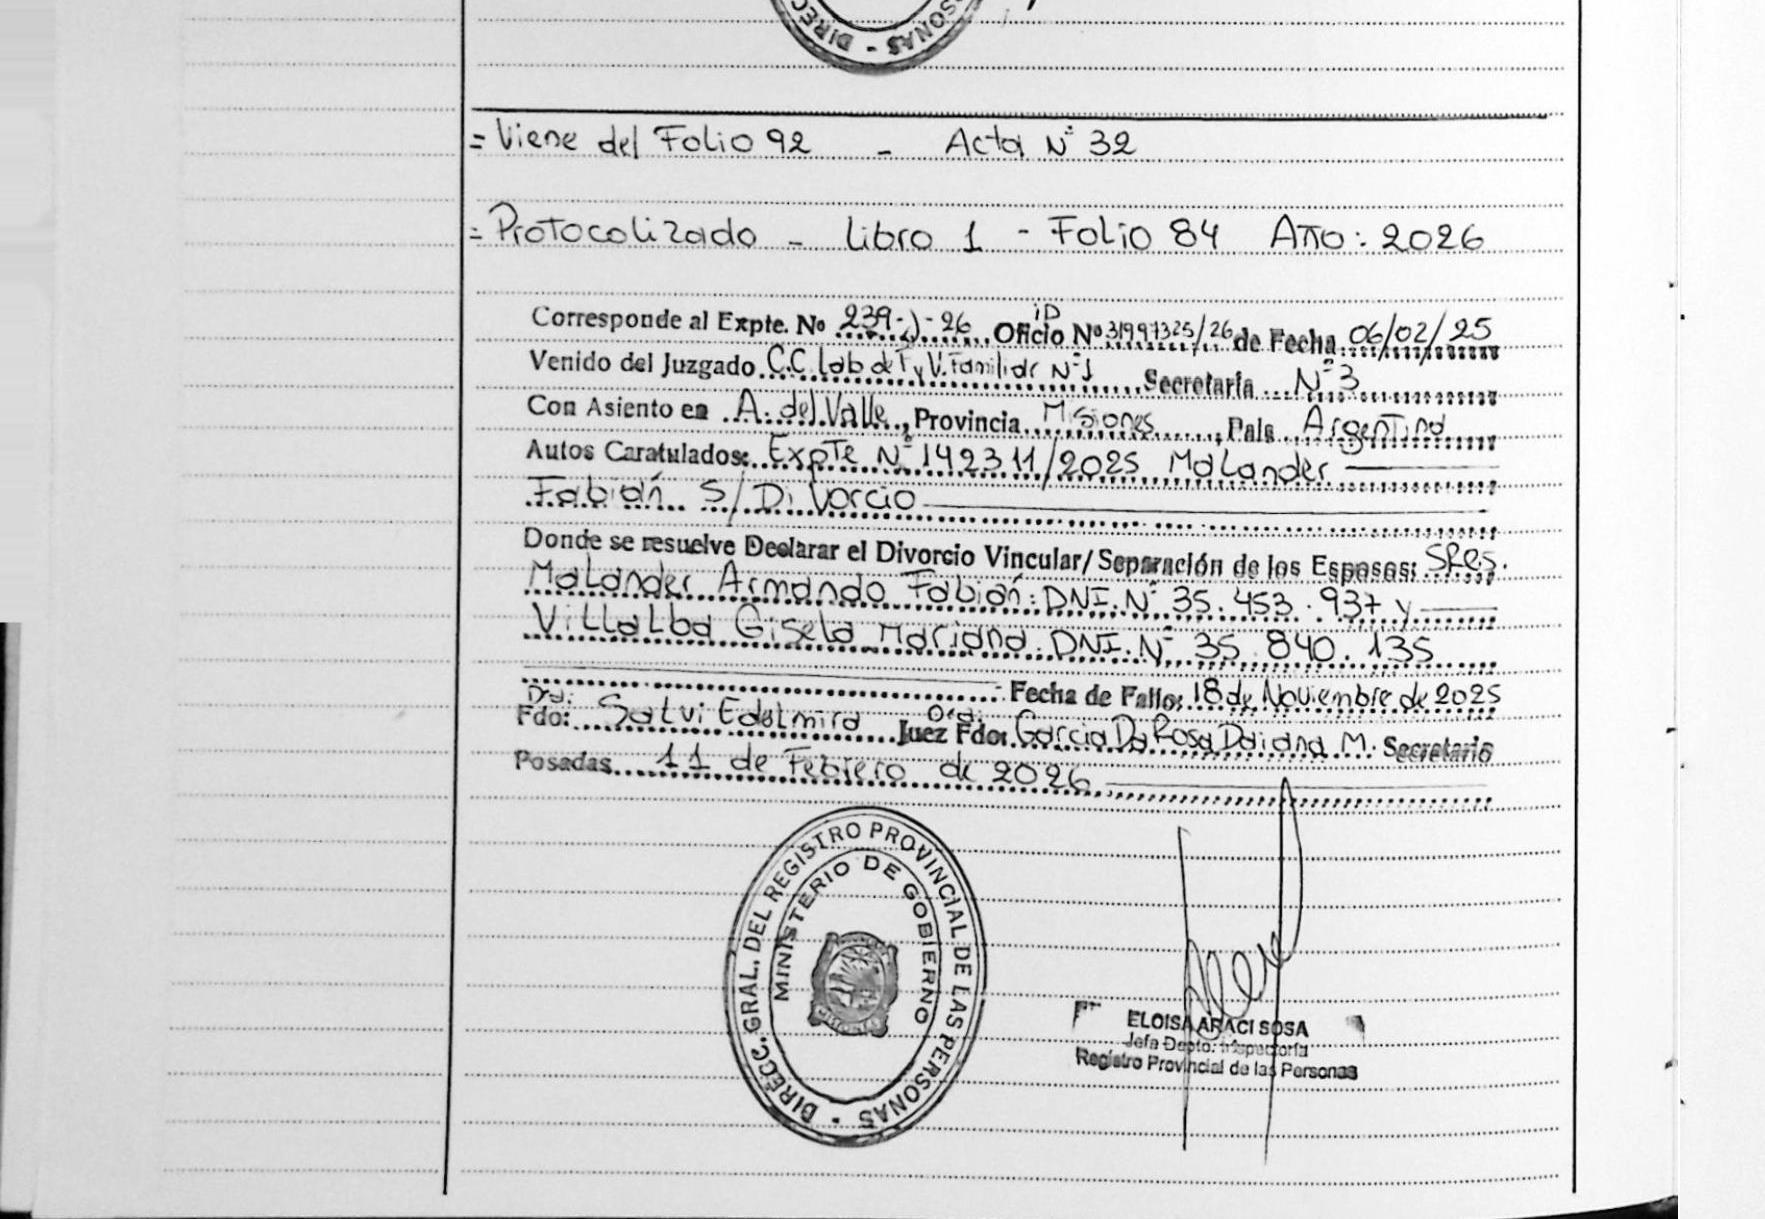 DIRECC
SONAS
= Viene del Folio 92 - Acta N° 32
= Protocolizado - Libro 1 - Folio 84 Año: 2026
Corresponde al Expte. No 239-J-26 Oficio iD Nº 31997325/26 de Fecha 06/02/25
Venido del Juzgado C.C. Lab de F y V. Familiar N°1 Secretaría N°3
Con Asiento en A. del Valle, Provincia Misiones, País Argentina
Autos Caratulados: Expte N° 142311/2025 Malander
Fabián S/ Divorcio
Donde se resuelve Declarar el Divorcio Vincular/Separación de los Esposos: SRes.
Malander Armando Fabián: DNI. N° 35.453.937 y
Villalba Gisela Mariana: DNI. N° 35.840.135
Fecha de Fallo: 18 de Noviembre de 2025
Fdo: Dra: Salvi Edelmira Juez Fdo: Dra: Garcia Da Rosa Daiana M. Secretario
Posadas 11 de Febrero de 2026
DIRECC. GRAL. DEL REGISTRO PROVINCIAL DE LAS PERSONAS
MINISTERIO DE GOBIERNO
ELOISA ARACI SOSA
Jefa Depto. Inspectoría
Registro Provincial de las Personas